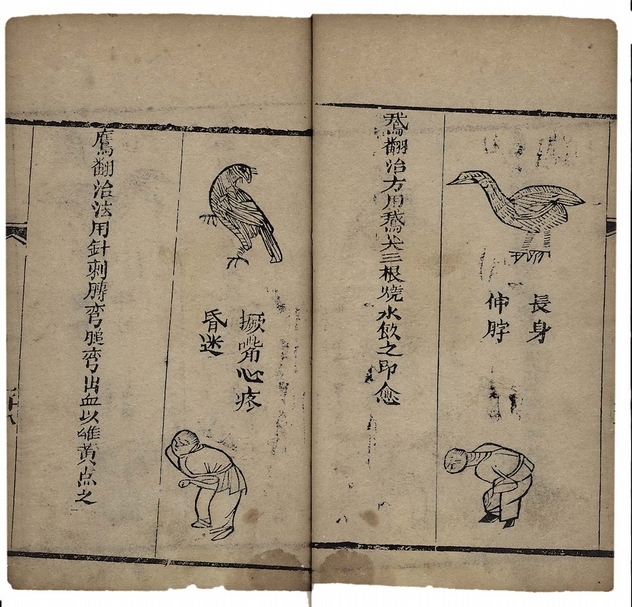 長身
伸脖
鵝翻治方用鵝尖三根燒水飲之即愈
撅嘴心疼
昏迷
鷹翻治法用針刺膊弯腿弯出血以雄黃点之